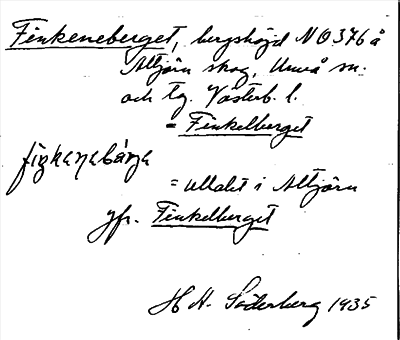 Finkeneberget, bergshöjd NO 376 å
Altjärn skog, Umeå sn.
och tg. Västerb. l.
= Finkelberget
fiŋkenebärja
= uttalet i Altjärn
jfr. Finkelberget
H. A. Söderberg 1935